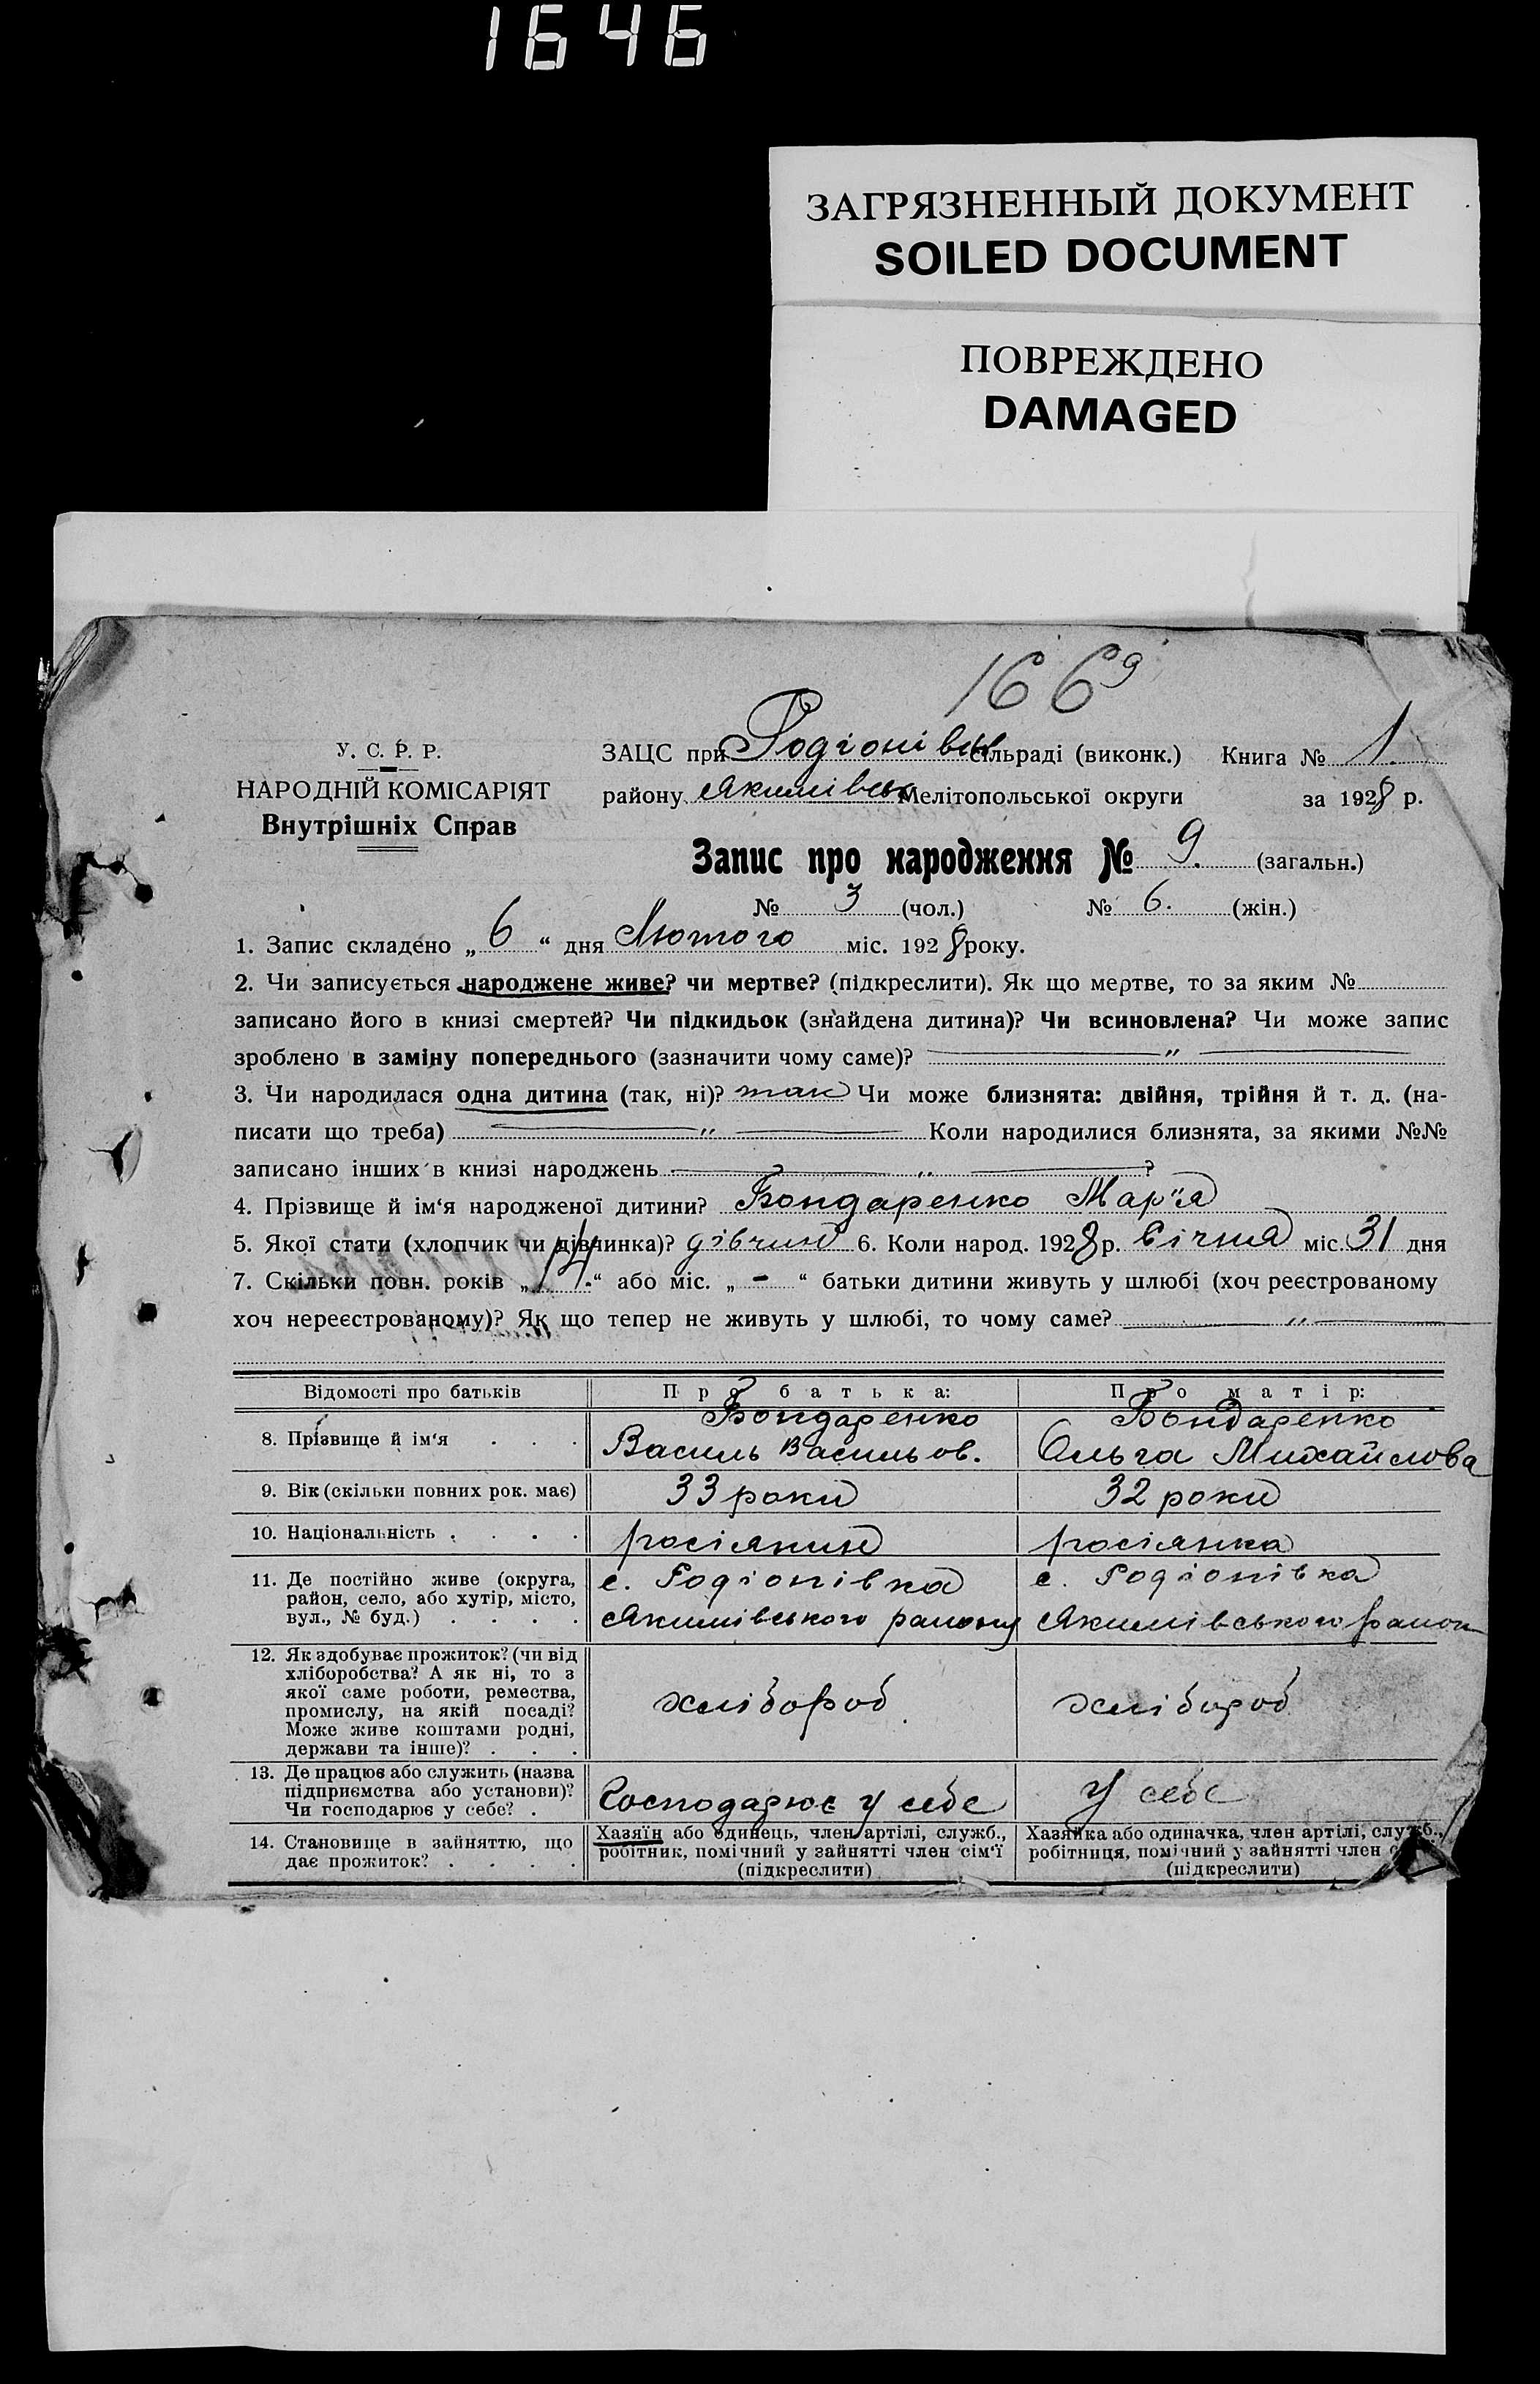 1646
ЗАГРЯЗНЕННЫЙ ДОКУМЕНТ
SOILED DOCUMENT
ПОВРЕЖДЕНО
DAMAGED
166 9
У. С. Р. Р.
НАРОДНІЙ КОМІСАРІЯТ
Внутрішніх Справ
ЗАЦС при Родіонівськ сільраді (виконк.) Книга № 1.
району Якимівськ Мелітопольської округи за 1928 р.
Запис про народження № 9. (загальн.)
№ 3 (чол.) № 6. (жін.)
1. Запис складено „ 6 “ дня Лютого міс. 1928 року.
2. Чи записується народжене живе? чи мертве? (підкреслити). Як що мертве, то за яким №
записано його в книзі смертей? Чи підкидьок (знайдена дитина)? Чи всиновлена? Чи може запис
зроблено в заміну попереднього (зазначити чому саме)? — „ —
3. Чи народилася одна дитина (так, ні)? так Чи може близнята: двійня, трійня й т. д. (на-
писати що треба) — „ — Коли народилися близнята, за якими №№
записано інших в книзі народжень — „ — ?
4. Прізвище й ім‘я народженої дитини? Бондаренко Мар"я
5. Якої стати (хлопчик чи дівчинка)? дівчина 6. Коли народ. 1928 р. Січня міс. 31 дня
7. Скільки повн. років „ 14. “ або міс. „ - “ батьки дитини живуть у шлюбі (хоч реєстрованому
хоч нереєстрованому)? Як що тепер не живуть у шлюбі, то чому саме? — „ —
Відомості про батьків Про батька: Про матір:
8. Прізвище й ім‘я . . . Бондаренко Василь Васильов. Бондаренко Ольга Михайлова
9. Вік (скільки повних рок. має) 33 роки 32 роки
10. Національність . . . . росіянин росіянка
11. Де постійно живе (округа, с. Родіонівка с. Родіонівка
район, село, або хутір, місто, Якимівського району Якимівського район
вул., № буд.) . . . .
12. Як здобуває прожиток? (чи від
хліборобства? А як ні, то з
якої саме роботи, ремества, хлібороб хлібороб
промислу, на якій посаді?
Може живе коштами родні,
держави та інше)? . . .
13. Де працює або служить (назва
підприємства або установи)? Господарює у себе У себе
Чи господарює у себе? .
14. Становище в зайняттю, що Хазяїн або одинець, член артілі, служб., Хазяйка або одиначка, член артілі, служб.,
дає прожиток? . . . . робітник, помічний у зайнятті член сім‘ї робітниця, помічний у зайнятті член
(підкреслити) (підкреслити)